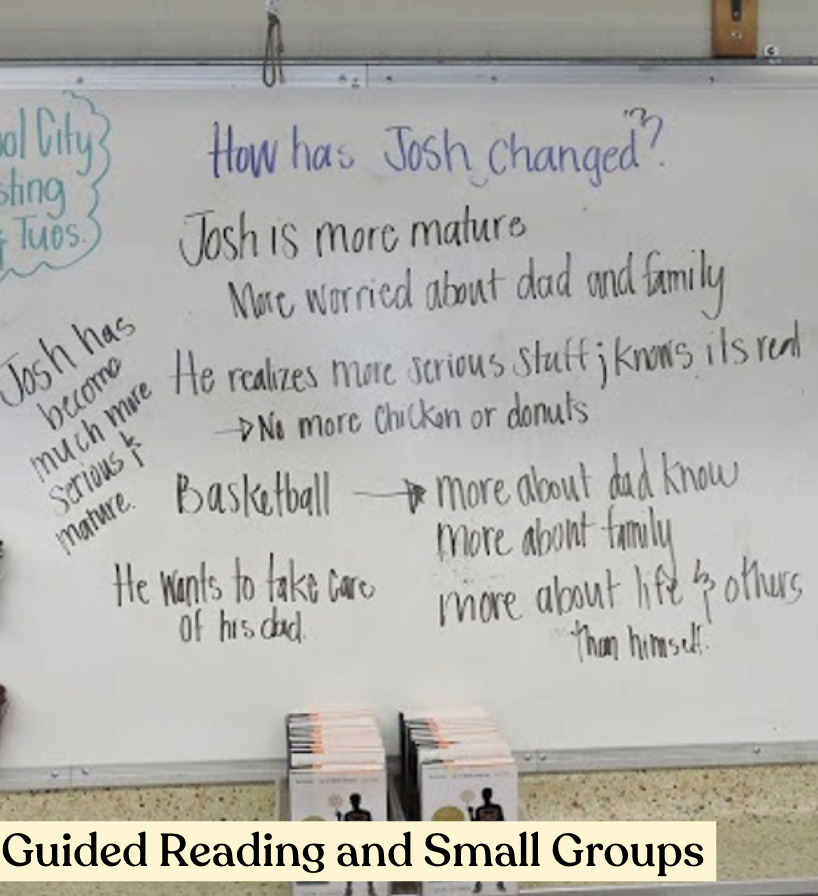 ool City
sting
Tues.
How has Josh changed?
Josh is more mature
More worried about dad and family
He realizes more serious stuff; knows its real
→No more chicken or donuts
Josh has
become
much more
serious &
mature.
Basketball → more about dad know
more about family
more about life & others
than himself.
He wants to take care
of his dad.
Guided Reading and Small Groups